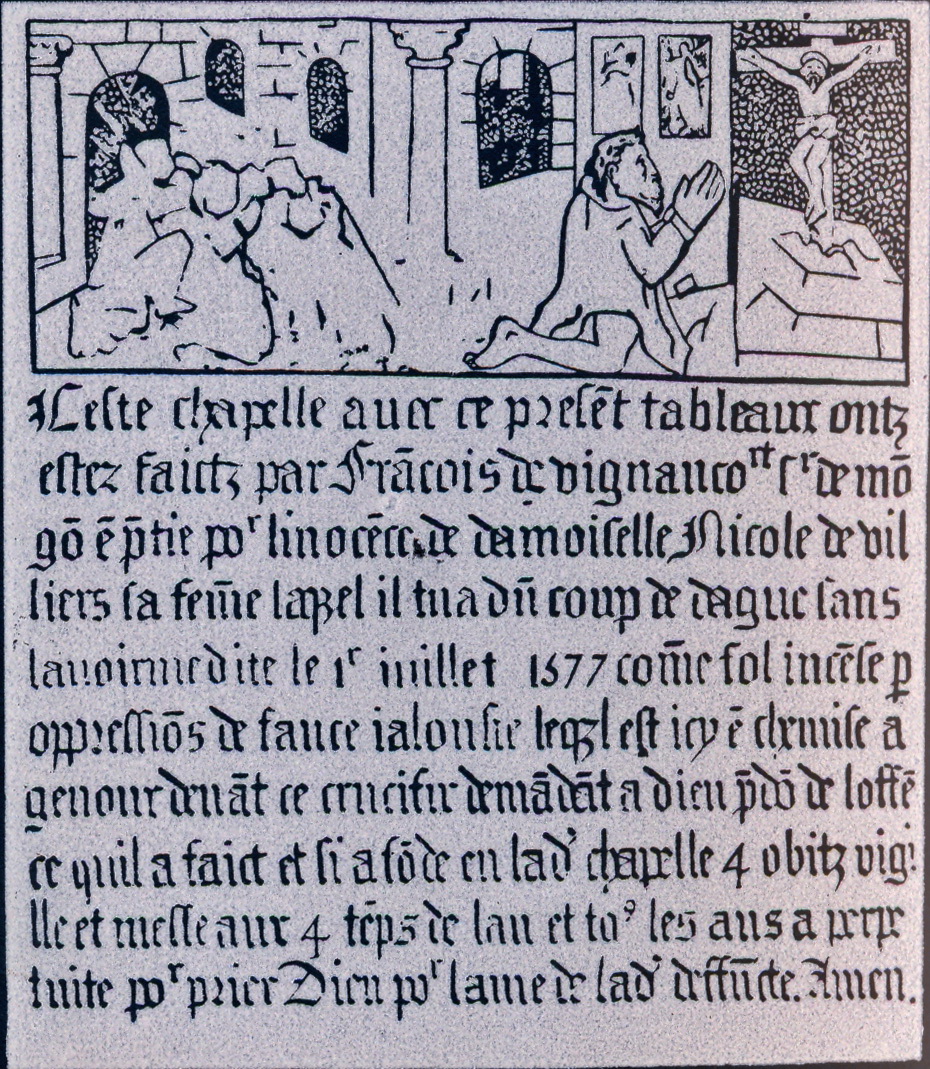 Ceste chapelle auec ce presēt tableaux ontz
estez faictz par Frācois de vignancoʳᵗ sʳ de mō
gō ē p̄tie poʳ linocēce de damoiselle Nicole de vil
liers sa fem̄e laꝗel il tua dū coup de dague sans
lauoir medite le 1ʳ iuillet 1577 com̄e fol incēse p
oppressiōs de fauce ialousie leqꝫl est icy ē chemise a
genoux deuāt ce crucifix demādāt a dieu p̄dō de loffē
ce quil a faict et si a fōde en lad' chapelle 4 obitz vigi
lle et messe aux 4 tēps de lan et to⁹ les ans a perpe
tuite poʳ prier Dieu poʳ lame de lad' deffūcte. Amen.